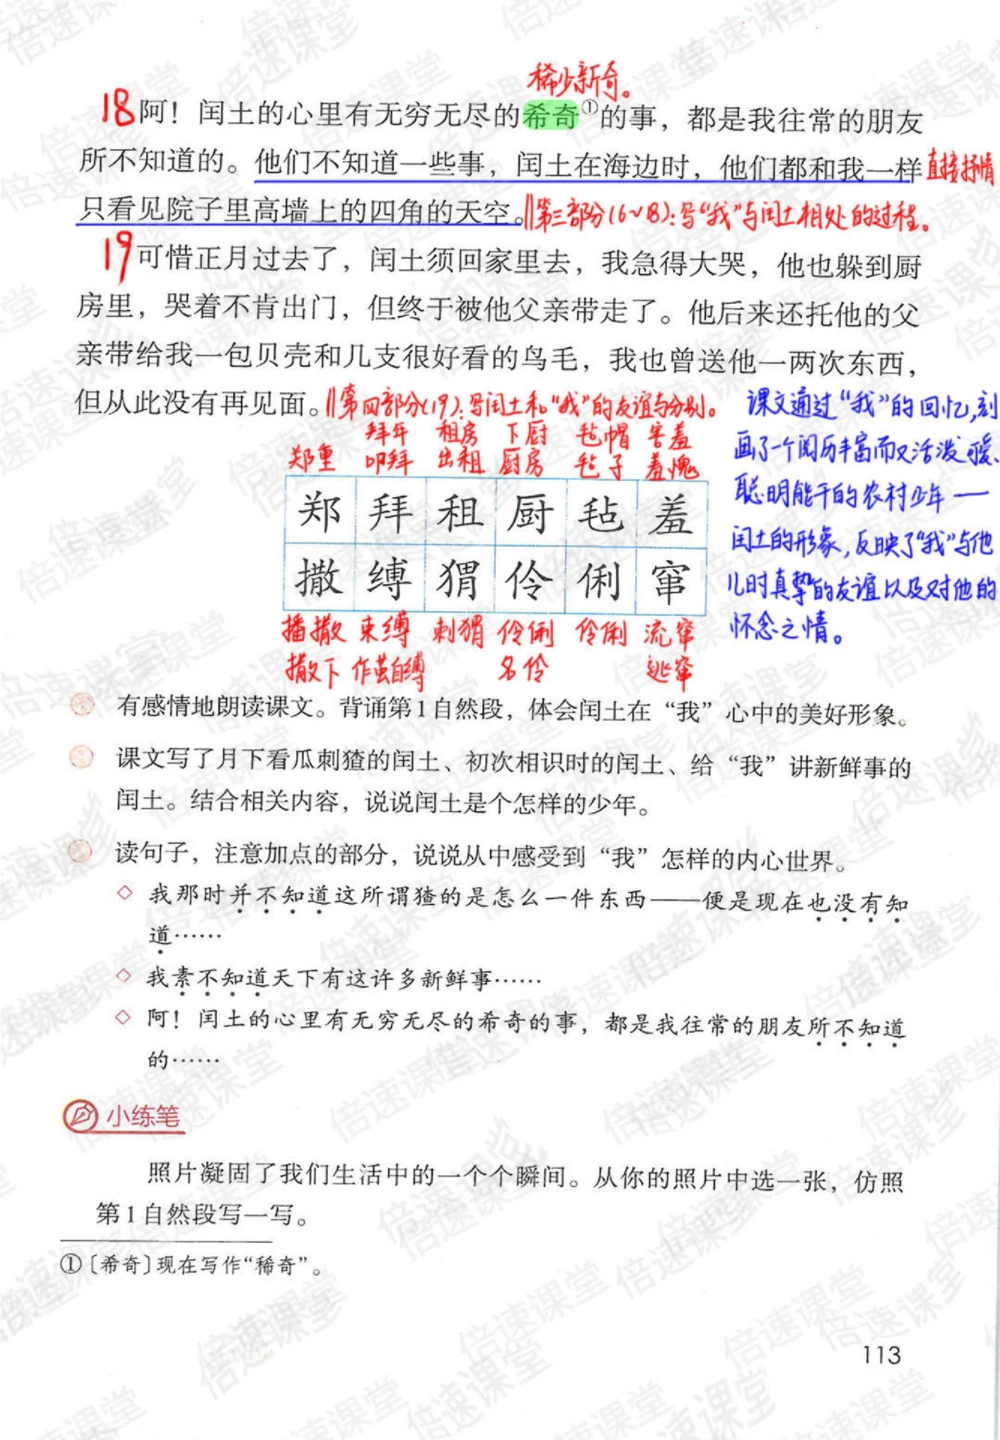 稀少新奇。
18阿！闰土的心里有无穷无尽的希奇①的事，都是我往常的朋友
所不知道的。他们不知道一些事，闰土在海边时，他们都和我一样 直接抒情
只看见院子里高墙上的四角的天空。‖第三部分(6~18)：写“我”与闰土相处的过程。
19可惜正月过去了，闰土须回家里去，我急得大哭，他也躲到厨
房里，哭着不肯出门，但终于被他父亲带走了。他后来还托他的父
亲带给我一包贝壳和几支很好看的鸟毛，我也曾送他一两次东西，
但从此没有再见面。‖第四部分(19)：写闰土和“我”的友谊与分别。
课文通过“我”的回忆，刻
画了一个阅历丰富而又活泼可爱、
聪明能干的农村少年——
闰土的形象，反映了“我”与他
儿时真挚的友谊以及对他的
怀念之情。
拜年 租房 下厨 毡帽 害羞
郑重 叩拜 出租 厨房 毡子 羞愧
郑 拜 租 厨 毡 羞
撒 缚 猬 伶 俐 窜
播撒 束缚 刺猬 伶俐 伶俐 流窜
撒下 作茧自缚 名伶 逃窜
有感情地朗读课文。背诵第1自然段，体会闰土在“我”心中的美好形象。
课文写了月下看瓜刺猹的闰土、初次相识时的闰土、给“我”讲新鲜事的
闰土。结合相关内容，说说闰土是个怎样的少年。
读句子，注意加点的部分，说说从中感受到“我”怎样的内心世界。
◇ 我那时并不知道这所谓猹的是怎么一件东西——便是现在也没有知
道……
◇ 我素不知道天下有这许多新鲜事……
◇ 阿！闰土的心里有无穷无尽的希奇的事，都是我往常的朋友所不知道
的……
小练笔
照片凝固了我们生活中的一个个瞬间。从你的照片中选一张，仿照
第1自然段写一写。
①〔希奇〕现在写作“稀奇”。
113
倍速课堂